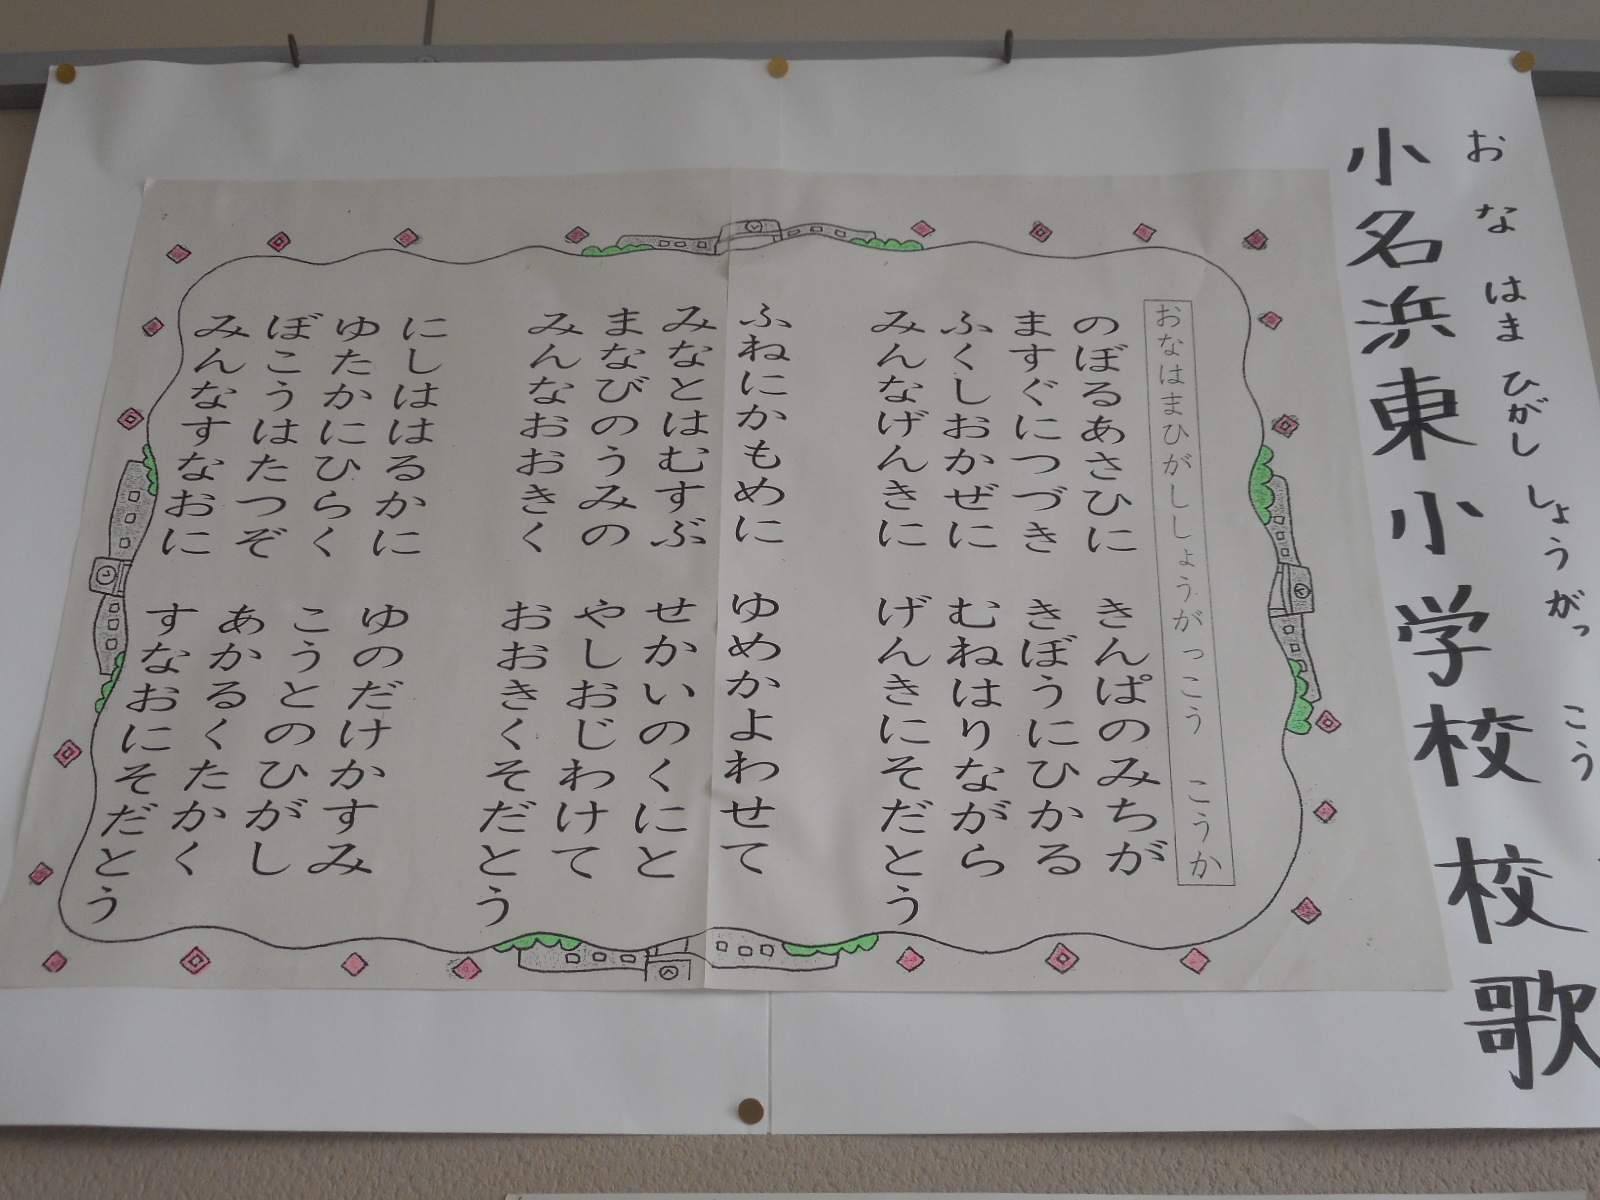 小名浜東小学校 校歌
おなはまひがししょうがっこう
おなはまひがししょうがっこう こうか
のぼるあさひに きんぱのみちが
ますぐにつづき きぼうにひかる
ふくしおかぜに むねはりながら
みんなげんきに げんきにそだとう
ふねにかもめに ゆめかよわせて
みなとはむすぶ せかいのくにと
まなびのうみの やしおじわけて
みんなおおきく おおきくそだとう
にしははるかに ゆのだけかすみ
ゆたかにひらく こうとのひがし
ぼこうはたつぞ あかるくたかく
みんなすなおに すなおにそだとう